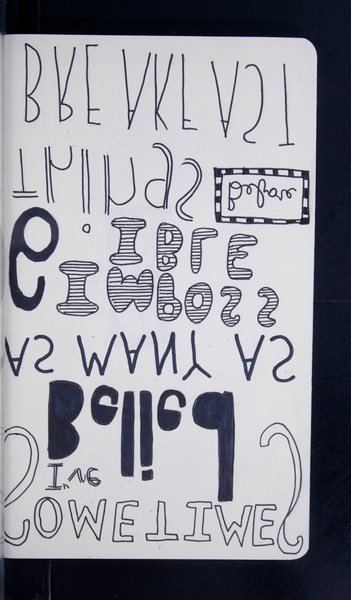 SOMETIMES
I've
Belied
AS MANY AS
6 IMPOSS
IBLE
things before
BREAKFAST